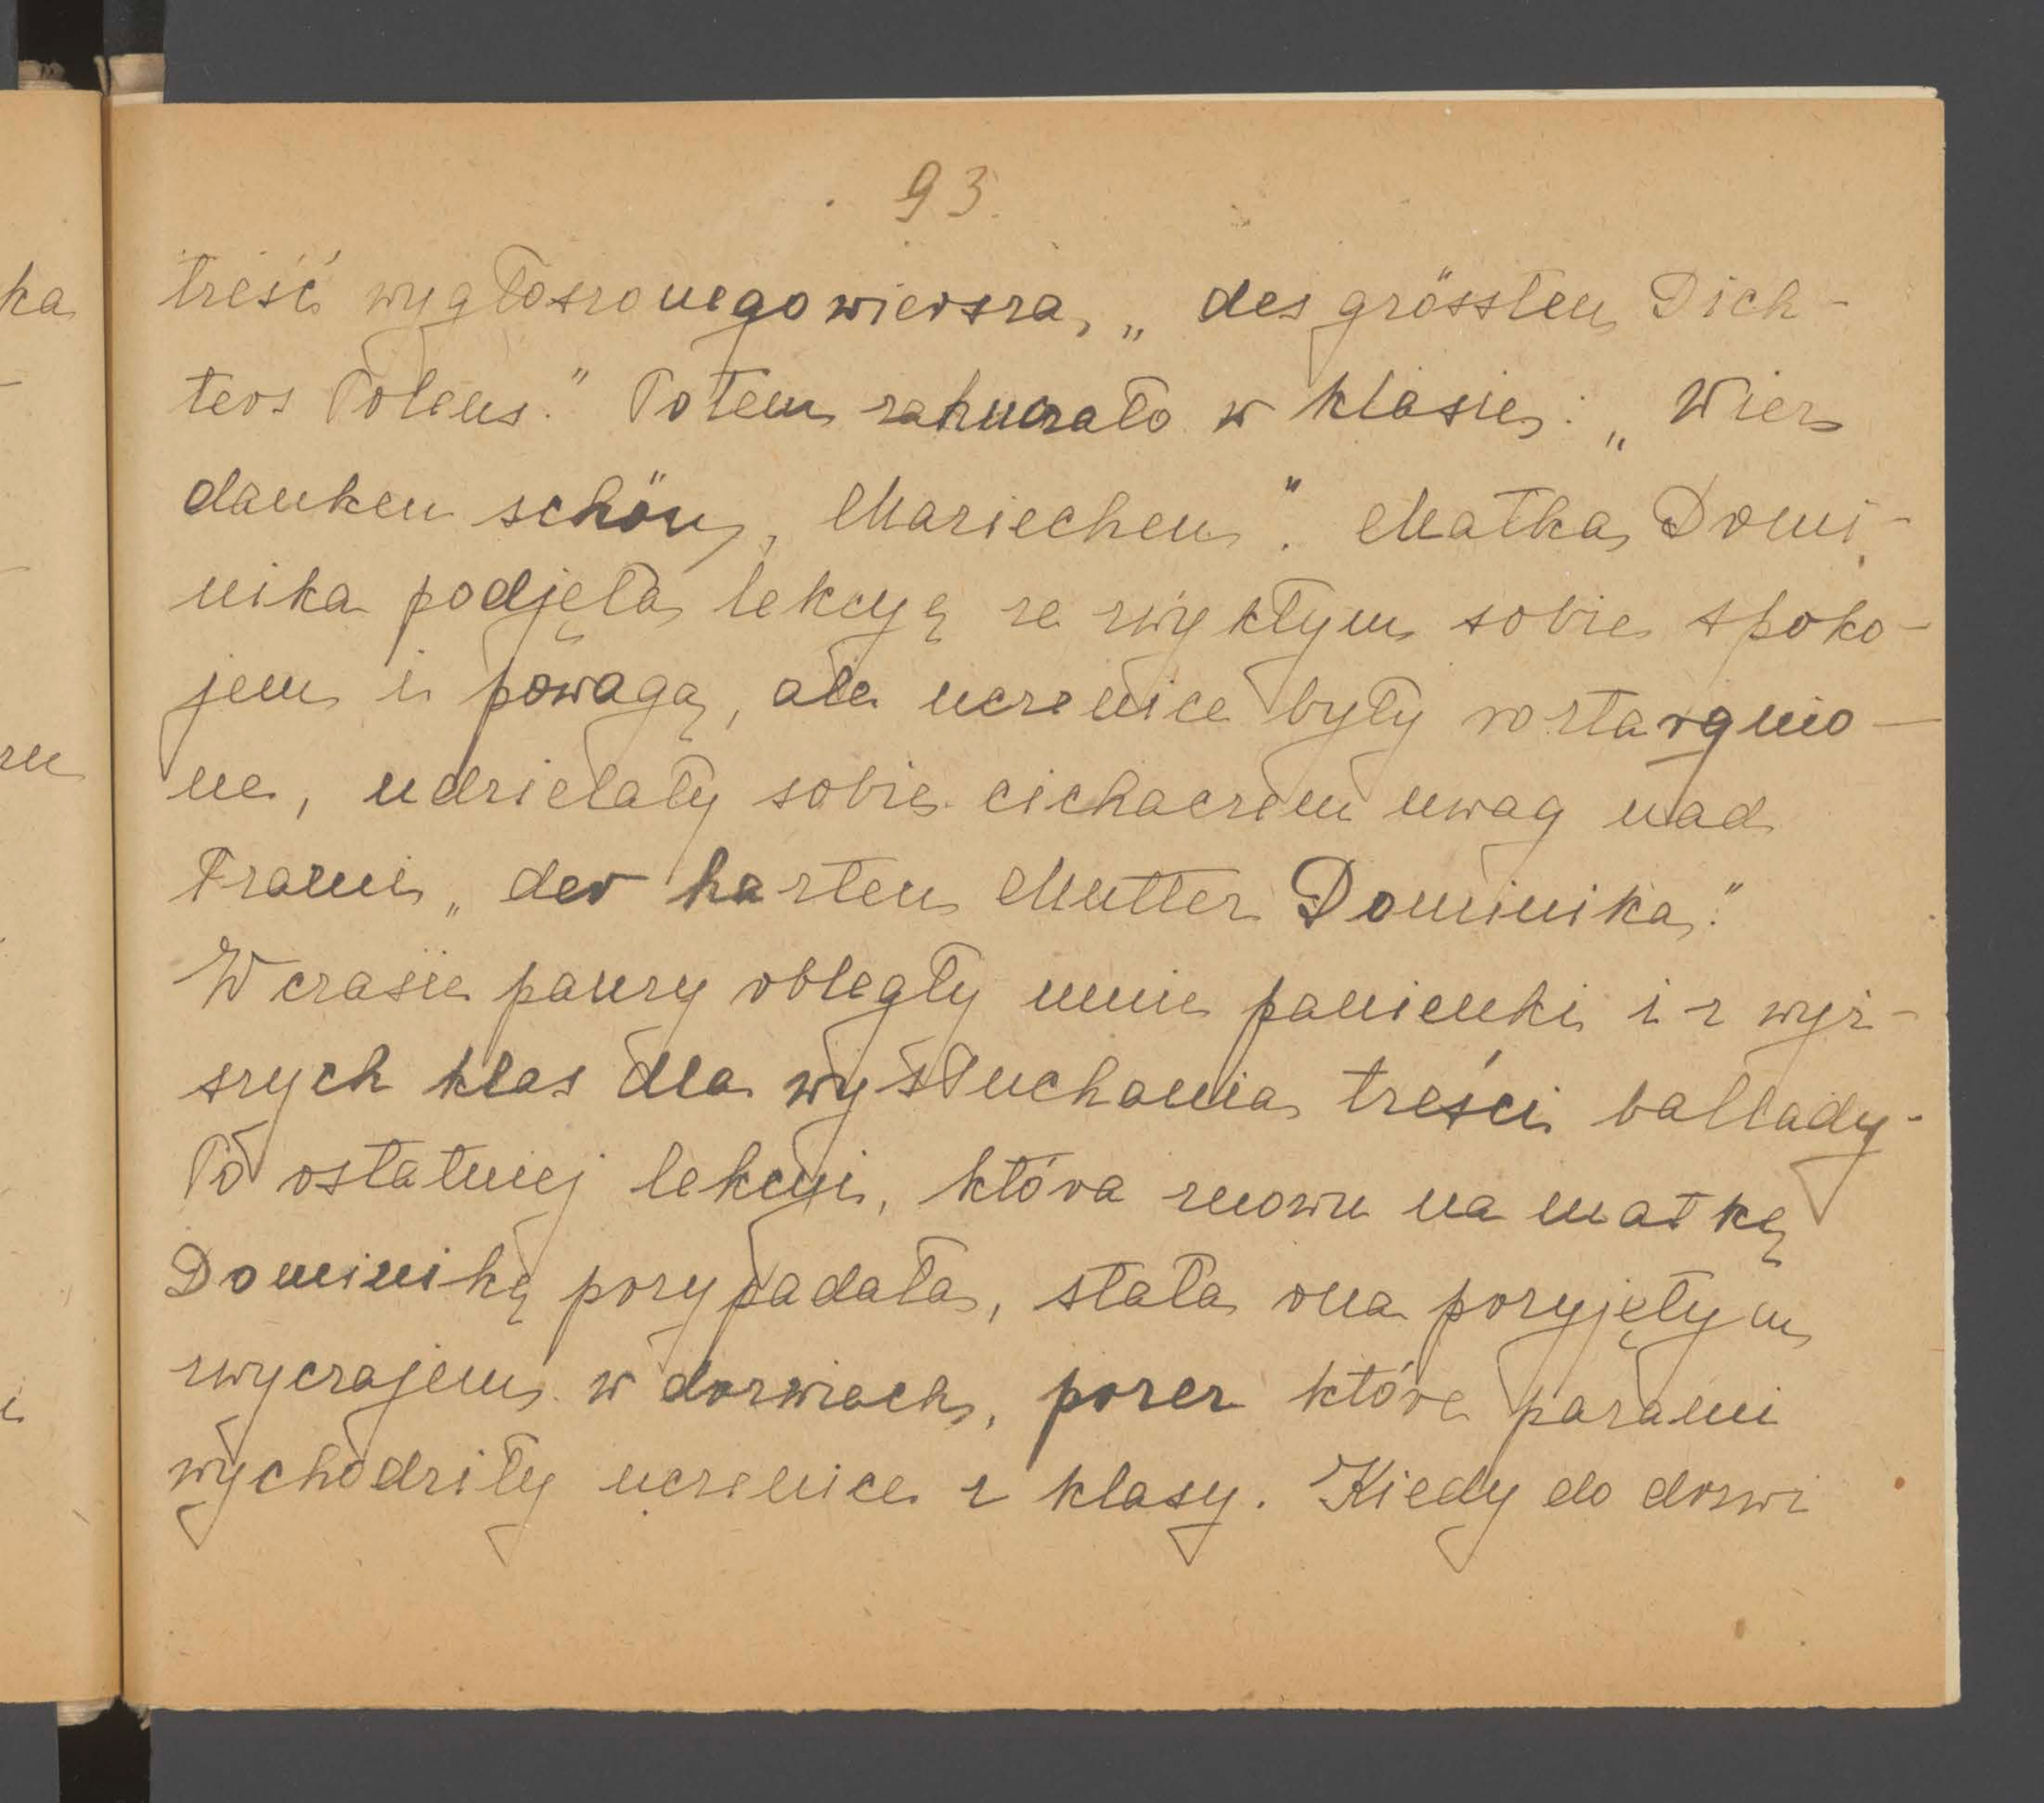 93.
treść wygłoszonego wiersza, „des grössten Dich-
ters Polens." Potem zahuczało w klasie: „Wier
danken schön, Mariechen". Matka Domi-
nika podjęła lekcyę ze zwykłym sobie spoko-
jem i powagą, ale uczenice były roztargnio-
ne, udzielały sobie cichaczem uwag nad
łzami „der harten Mutter Dominika."
W czasie pauzy obległy mnie panienki i z wyż-
szych klas dla wysłuchania treści ballady.
Po ostatniej lekcyi, która znowu na matkę
Dominikę przypadała, stała ona przyjętym
zwyczajem w drzwiach, przez które parami
wychodziły uczenice z klasy. Kiedy do drzwi
ka